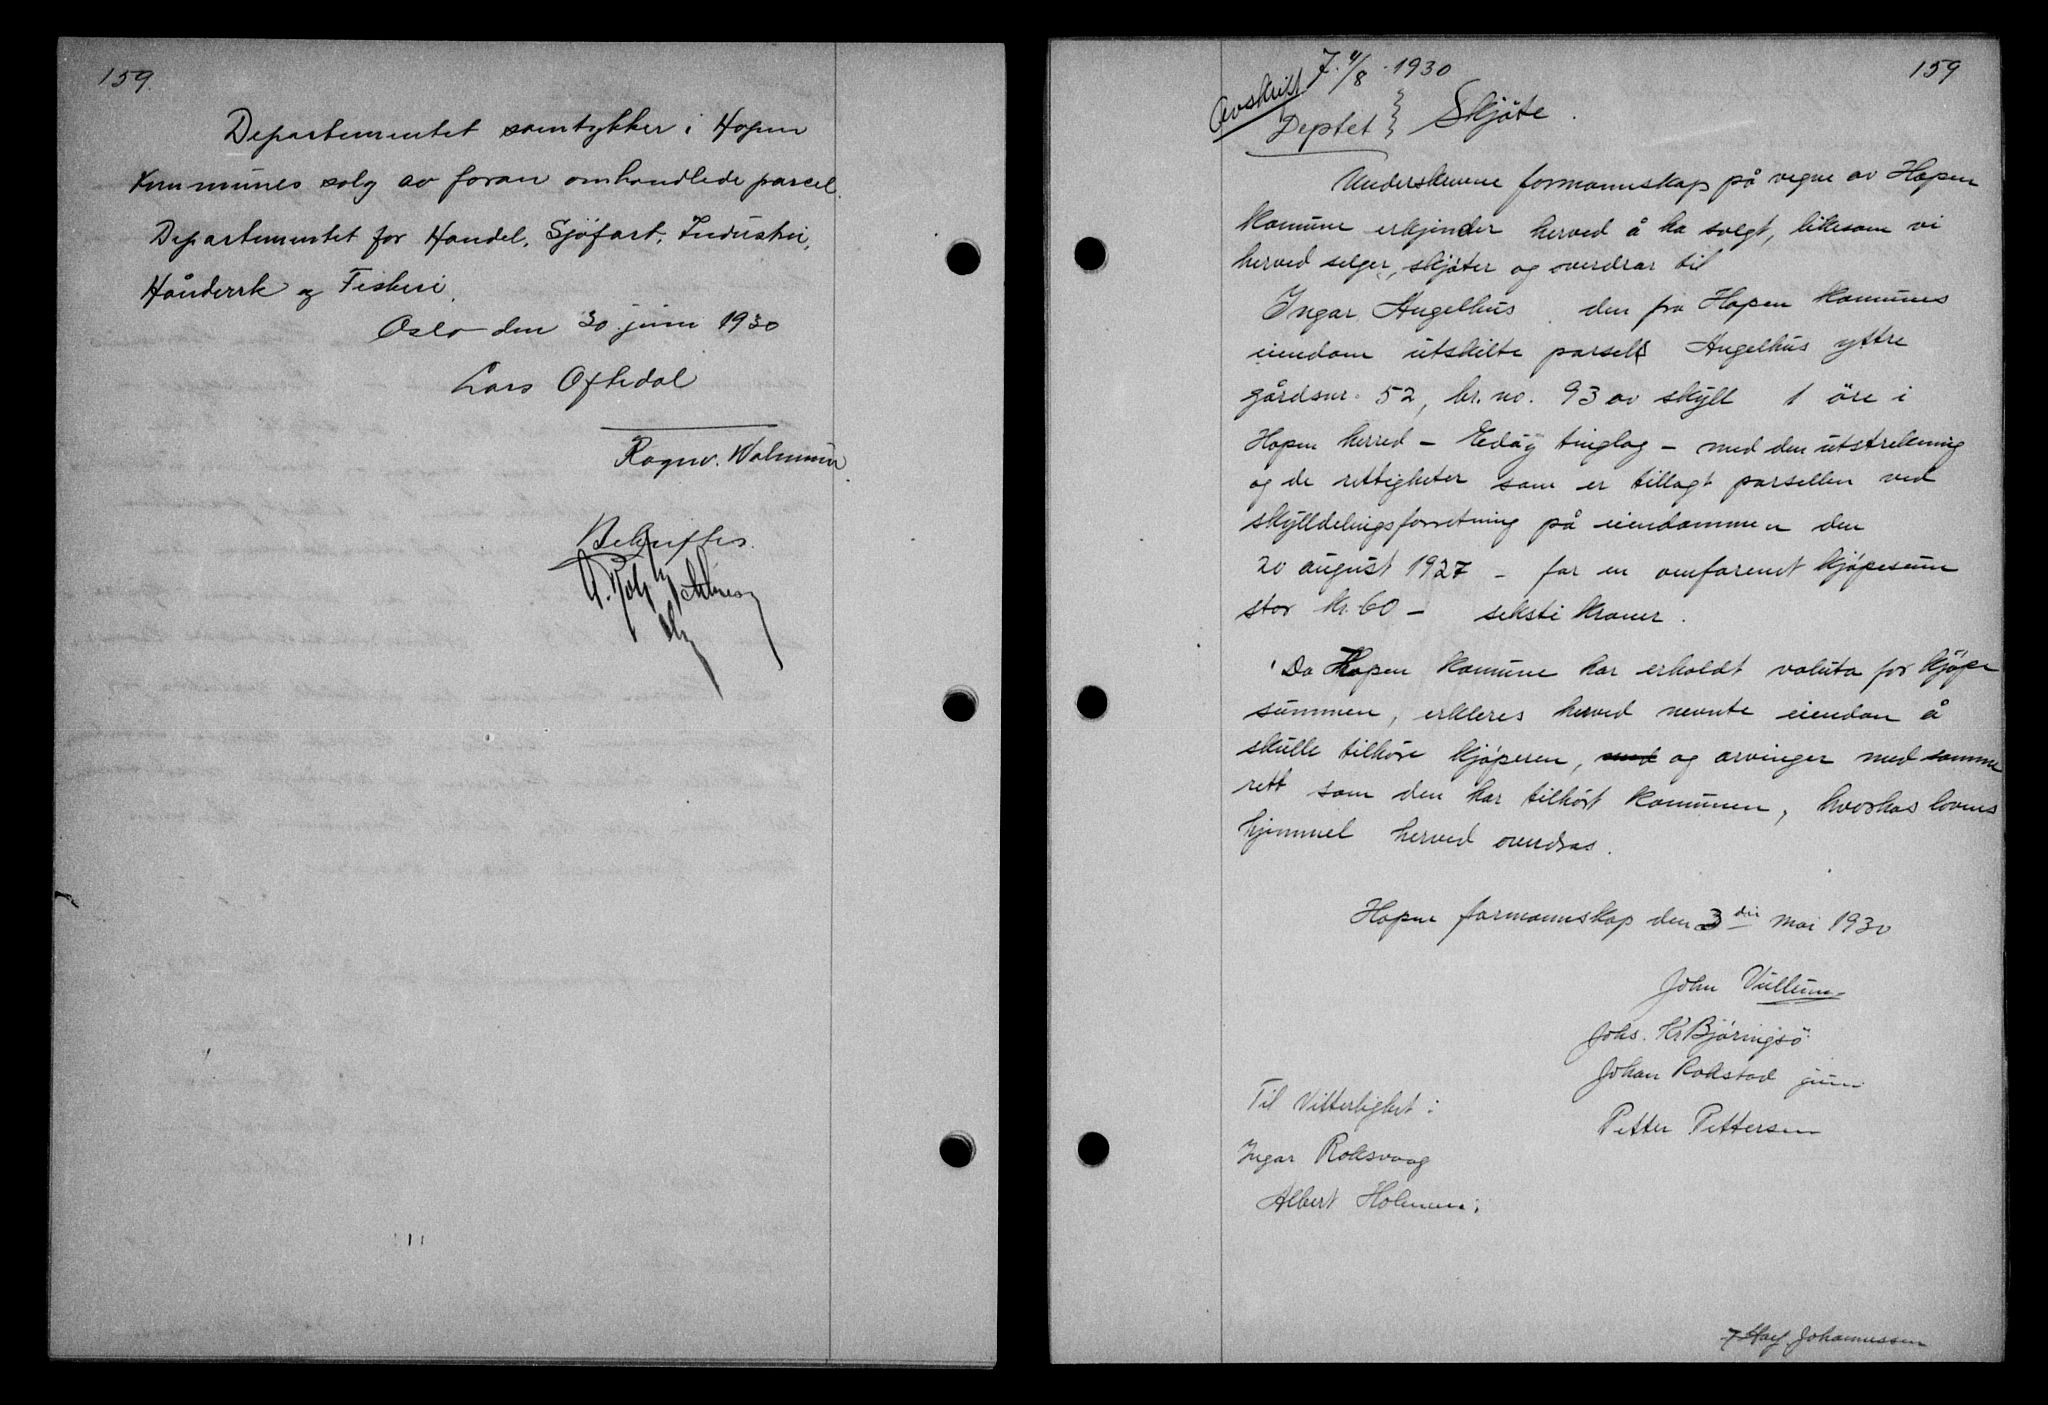 159.
Departementet samtykker i Hopen
Kommunes salg av foran omhandlede parcel.
Departementet for Handel, Sjöfart, Industri,
Håndverk og Fiskeri.
Oslo den 30 juni 1930
Lars Oftedal
Ragnv.
Bekreftes.
159
7. 4/8 1930
Avskrift
Deptet } Skjöte.
Underskrevne formannskap på vegne av Hopen
komune erkjender herved å ha solgt, likesom vi
herved selger, skjöter og overdrar til
Ingar Angelhus den fra Hopen komunes
eiendom utskilte parsell Angelhus yttre
gårdsnr. 52, br. no. 93 av skyll 1 öre i
Hopen herred - Edöy tinglag - med den utstrekning
og de rettigheter som er tillagt parsellen ved
skylldelingsforretning på eiendommen den
20 august 1927 - for en omforent kjöpesum
stor kr. 60 - seksti kroner.
Da Hopen komune har erholdt valuta for kjöpe
summen, erkleres herved nevnte eiendom å
skulle tilhöre kjöperen, med og arvinger med samme
rett som den har tilhört komunen, hvorhos lovens
hjemmel herved overdras.
Hopen formannskap den 3die mai 1930
John Vullum
Johs. Kr Björingsö
Johan Rokstad jun.
Til Vitterlighet: Petter Pettersen
Ingar Roksvaag
Albert Holmen
Johannessen